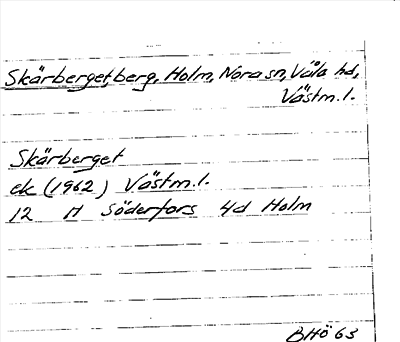 Skärberget, berg, Holm, Nora sn, Våla hd,
Västm.l.
Skärberget
ek (1962) Västm.l.
12 H Söderfors 4d Holm
BHÖ 63